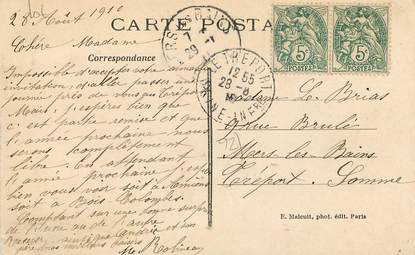 28 Août 1910
CARTE POSTALE
Chère Madame
Correspondance
Impossible d'accepter votre
invitation, et aller passer une
journée près de vous au Tréport
Mais, j'espères bien que
c'est partie remise et que
l'année prochaine nous
serons complètement
libre. En attendant
l'année prochaine j'espère
bien vous voir soit à
soit à Bois Colombes.
Comptant sur une bonne surprise
de l'une ou de l'autre
baisers
M. Robineau
LE TREPORT
12 55
28 -8
5c
5c
Madame Le Brias
Rue Brulé
Mers les Bains
Tréport. Somme
E. Malcuit, phot. édit. Paris